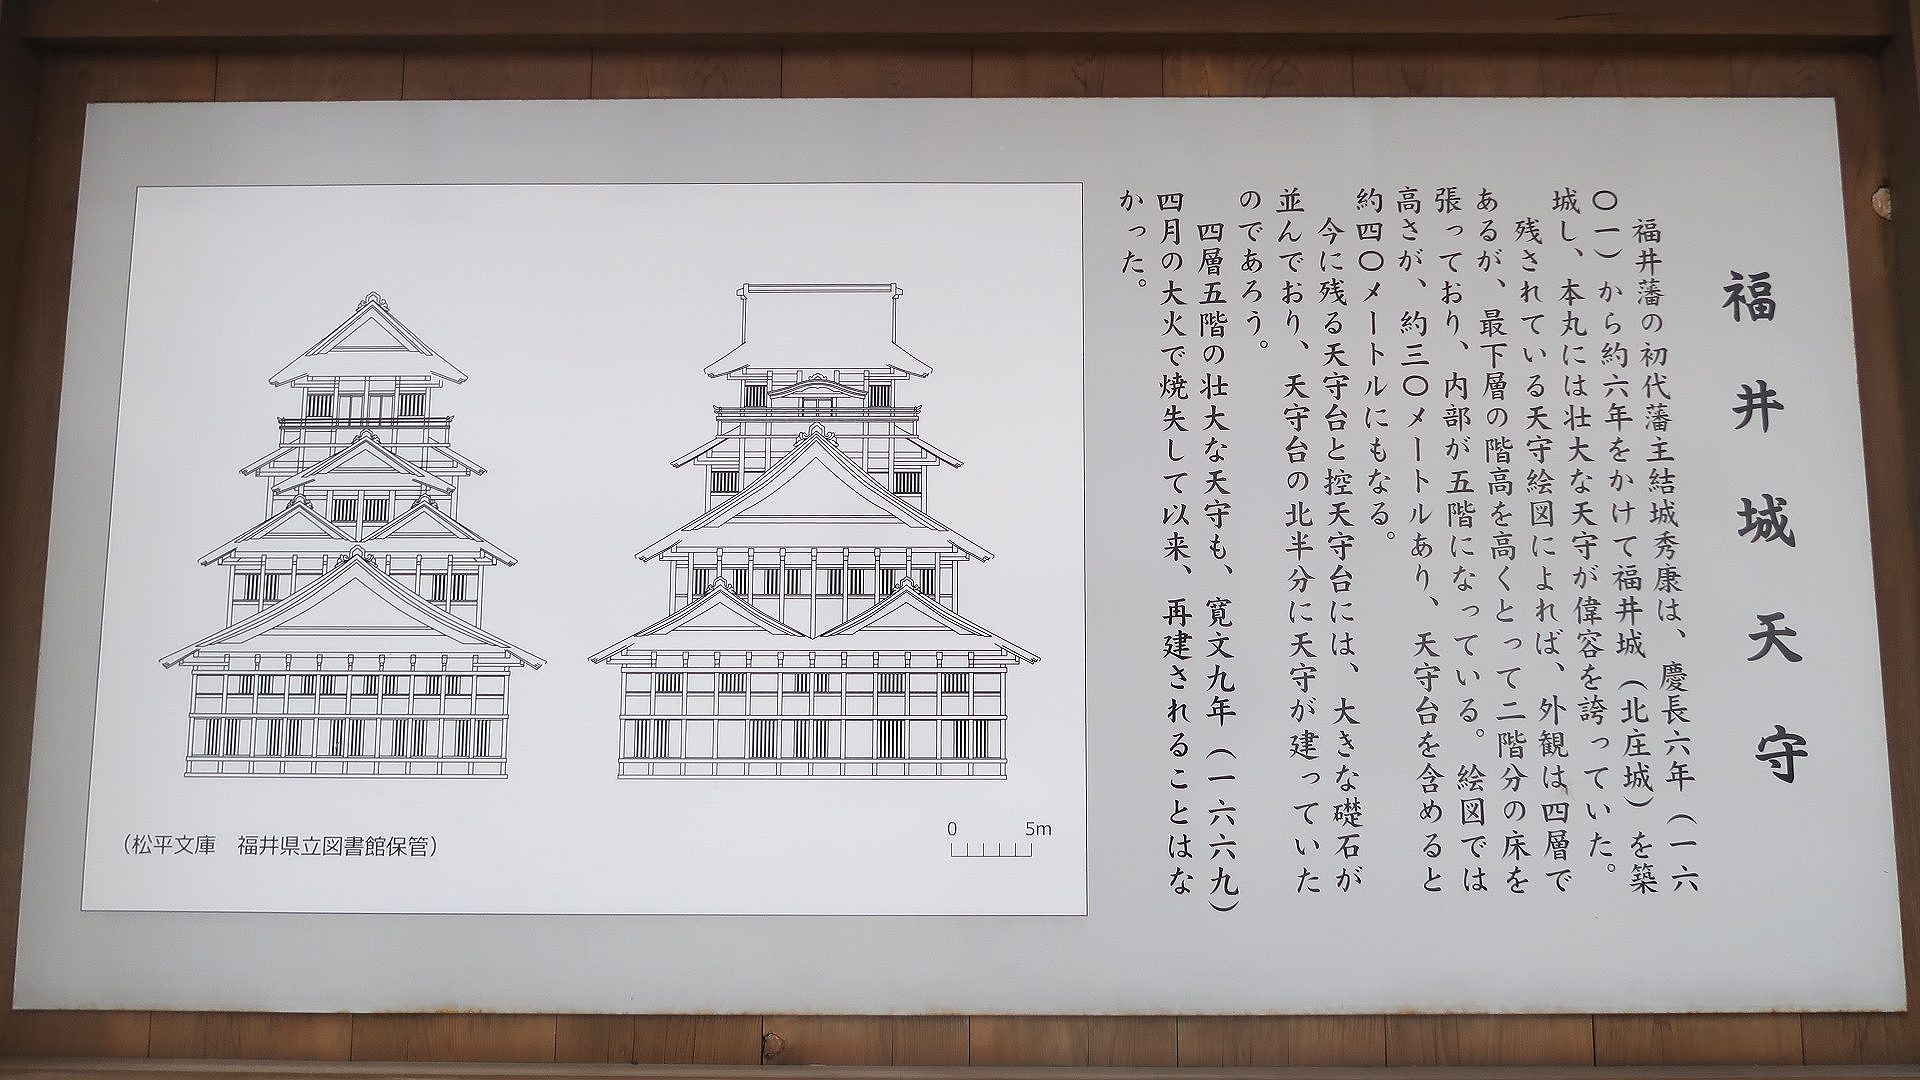 福井城天守
福井藩の初代藩主結城秀康は、慶長六年（一六
〇一）から約六年をかけて福井城（北庄城）を築
城し、本丸には壮大な天守が偉容を誇っていた。
残されている天守絵図によれば、外観は四層で
あるが、最下層の階高を高くとって二階分の床を
張っており、内部が五階になっている。絵図では
高さが、約三〇メートルあり、天守台を含めると
約四〇メートルにもなる。
今に残る天守台と控天守台には、大きな礎石が
並んでおり、天守台の北半分に天守が建っていた
のであろう。
四層五階の壮大な天守も、寛文九年（一六六九）
四月の大火で焼失して以来、再建されることはな
かった。
（松平文庫　福井県立図書館保管）
0 5m